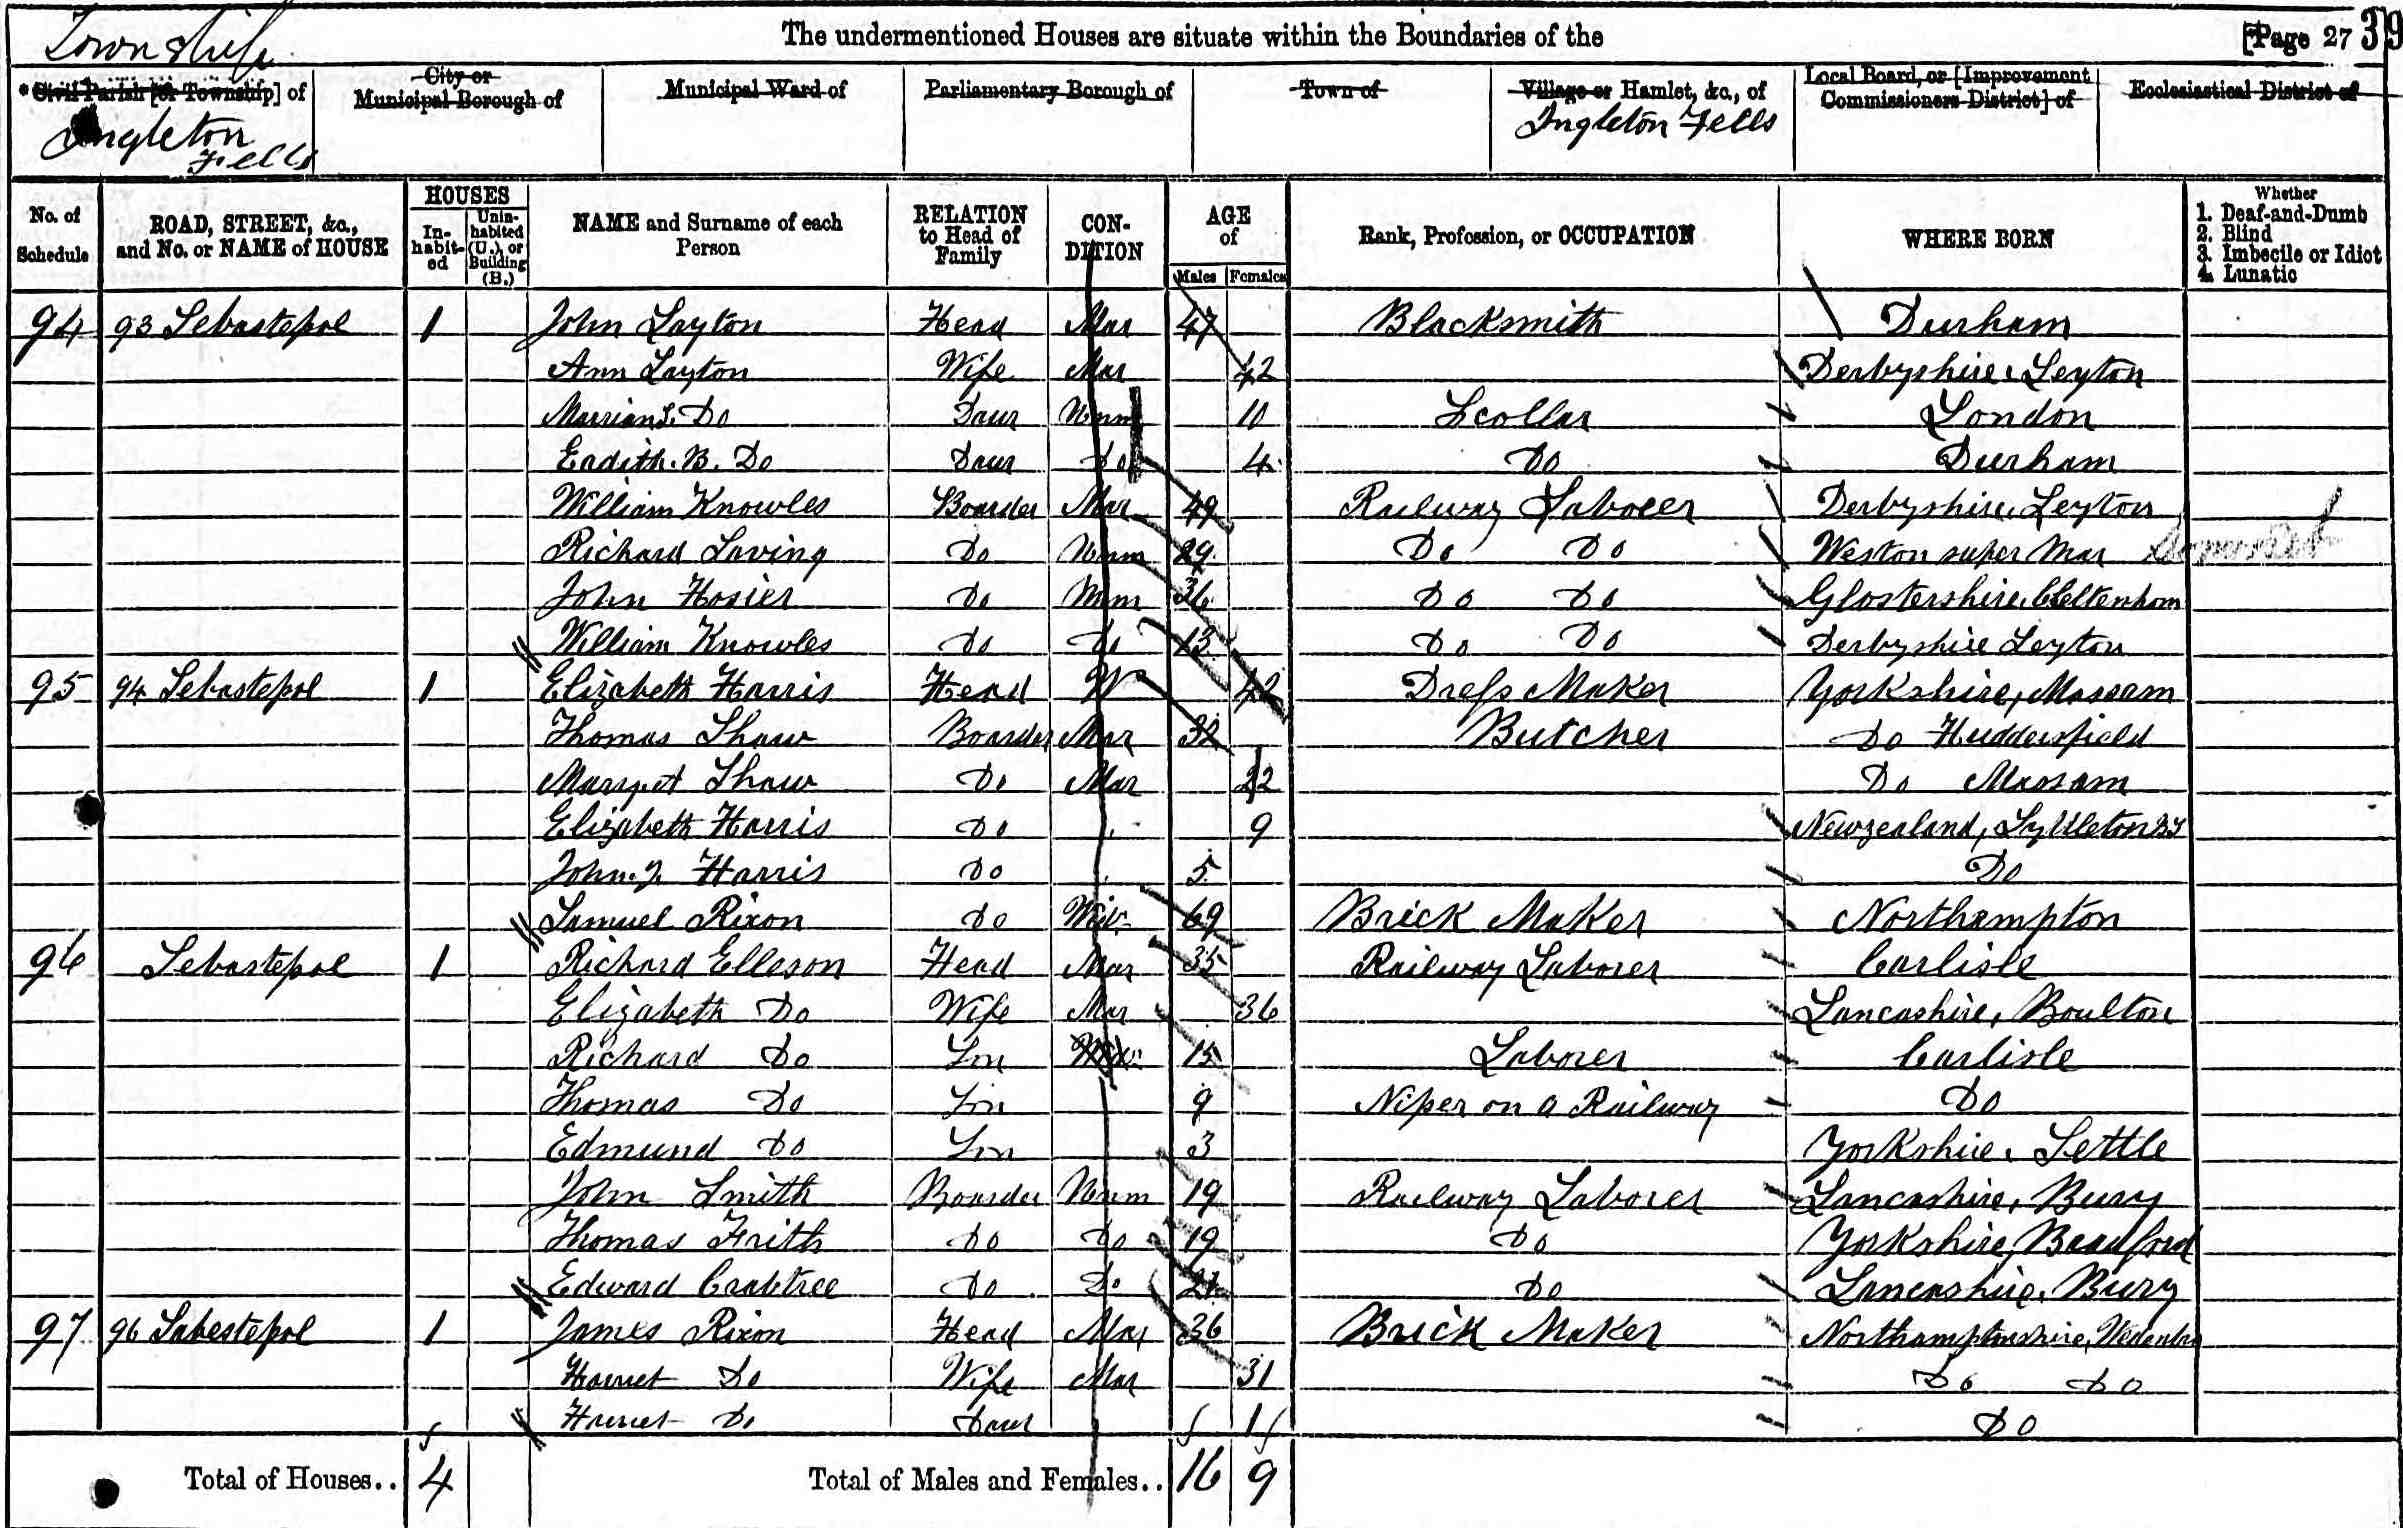 Township
The undermentioned Houses are situate within the Boundaries of the
[Page 27 39
*Civil Parish [or Township] of
City or Municipal Borough of
Municipal Ward of
Parliamentary Borough of
Town of
Village or Hamlet, &c., of
Local Board, or [Improvement Commissioners District] of
Ecclesiastical District of
Ingleton Fells
Ingleton Fells
No. of Schedule
ROAD, STREET, &c., and No. or NAME of HOUSE
HOUSES
In-habit-ed
Unin-habited (U.), or Building (B.)
NAME and Surname of each Person
RELATION to Head of Family
CON-DITION
AGE of
Males
Females
Rank, Profession, or OCCUPATION
WHERE BORN
Whether
1. Deaf-and-Dumb
2. Blind
3. Imbecile or Idiot
4. Lunatic
94 93 Sebastepol 1 John Layton Head Mar 47 Blacksmith Durham
Ann Layton Wife Mar 42 Derbyshire, Leyton
Do Daur Unm 10 Scollar London
Eadith. B. Do Daur Do 4 Do Durham
William Knowles Boarder Mar 49 Railway Laborer Derbyshire, Leyton
Richard Loving Do Unm 29 Do Do Weston super Mar Somerset
John Hosier Do 36 Do Do Glostershire, Cheltenham
William Knowles Do Do 13 Do Do Derbyshire Leyton
95 94 Sebastepol 1 Elizabeth Harris Head W 42 Dress Maker Yorkshire, Massam
Thomas Shaw Boarder Mar 32 Butcher Do Huddersfield
Margret Shaw Do Mar 22 Do Massam
Elizabeth Harris Do 9 Newzealand, Lyttleton
John. J. Harris Do 5 Do
Samuel Rixon Do Wid. 69 Brick Maker Northampton
96 Sebastepol 1 Richard Elleson Head Mar 35 Railway Laborer Carlisle
Elizabeth Do Wife Mar 36 Lancashire, Boulton
Richard Do Son 15 Laborer Carlisle
Thomas Do Son 9 Niper on a Railway Do
Edmund Do Son 3 Yorkshire, Settle
John Smith Boarder Unm 19 Railway Laborer Lancashire, Bury
Thomas Frith Do Do 19 Do Yorkshire, Bradford
Edward Crabtree Do Do 21 Do Lancashire, Bury
97 96 Sabestepol 1 James Rixon Head Mar 36 Brick Maker Northamptonshire,
Harriet Do Wife Mar 31 Do Do
Harriet Do Daur 1 Do
Total of Houses.. 4 Total of Males and Females.. 16 9